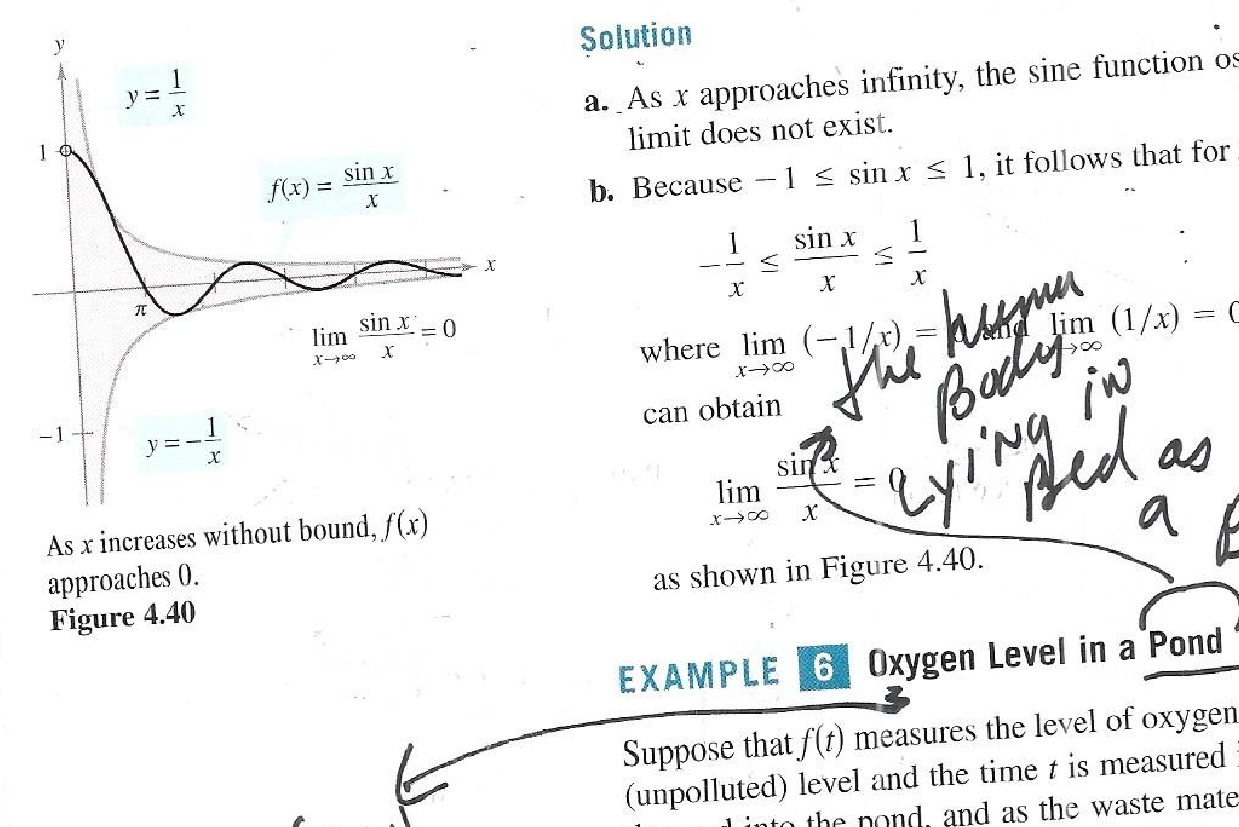 y
y = 1/x
1
f(x) = sin x / x
x
π
lim x→∞ sin x / x = 0
−1
y = − 1/x
As x increases without bound, f(x)
approaches 0.
Figure 4.40
Solution
a. As x approaches infinity, the sine function os
limit does not exist.
b. Because −1 ≤ sin x ≤ 1, it follows that for
− 1/x ≤ sin x / x ≤ 1/x
where lim x→∞ (−1/x) = and lim x→∞ (1/x) =
can obtain
lim x→∞ sin x / x = 0
as shown in Figure 4.40.
the human
Body
lying in
Bed as
a
EXAMPLE 6 Oxygen Level in a Pond
Suppose that f(t) measures the level of oxygen
(unpolluted) level and the time t is measured
into the pond, and as the waste mate